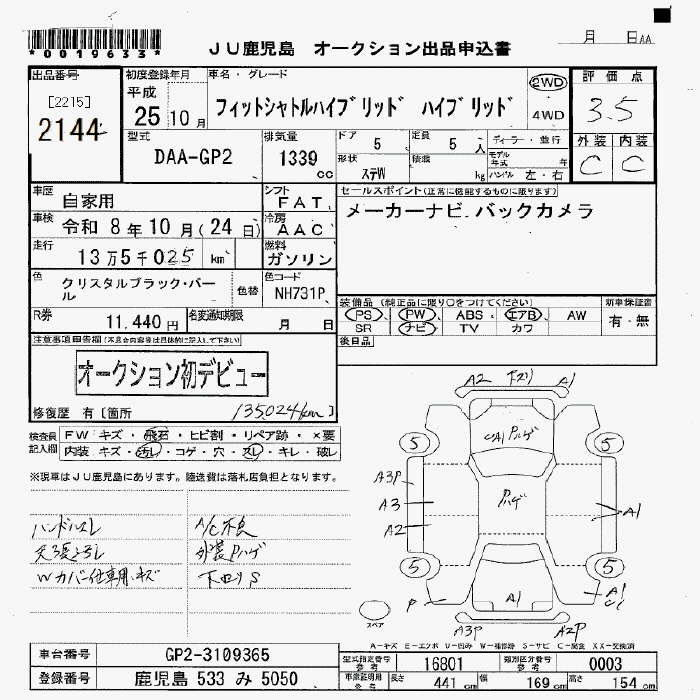 *0019633*
JU鹿児島 オークション出品申込書
月 日AA
出品番号
[2215]
2144
初度登録年月
平成
25年10月
車名・グレード
フィットシャトルハイブリッド ハイブリッド
2WD
4WD
評価点
3.5
外装 内装
C C
型式
DAA-GP2
排気量
1339
cc
ドア 5
定員 5 人
形状 ステW
積載 kg
ディーラー・並行
モデル年式 年
ハンドル 左・右
車歴
自家用
シフト
FAT
車検
令和 8年10月(24日)
冷房
AAC
走行
13万5千025 km
燃料
ガソリン
色
クリスタルブラック・パール
色替
色コード
NH731P
R券
11,440円
名変通知期限
月 日
セールスポイント(正常に機能するものに限ります)
メーカーナビ.バックカメラ
装備品(純正品に限り○をつけてください)
PS PW ABS エアB AW
SR ナビ TV カワ
新車保証書
有・無
後日品
注意事項申告欄(不具合内容等は具体的に記入して下さい)
オークション初デビュー
修復歴 有〔箇所
135024km〕
検査員記入欄
FW キズ・飛石・ヒビ割・リペア跡・×要
内装 キズ・汚レ・コゲ・穴・スレ・キレ・破レ
※現車はJU鹿児島にあります。陸送費は落札店負担となります。
ハンドルスレ
A/C不良
天張ヨゴレ
外装Pハゲ
Wカバー仕専用.キズ
下回りS
A2 下スリ A1
CA1 Pハゲ
5 5
A3P
A3
A2
Pハゲ
A1
5 5
P
A1
A1
C1
A3P A2P
スペア
A－キズ E－エクボ U－凹み W－補修跡 S－サビ C－腐食 XX－交換済
車台番号
GP2-3109365
登録番号
鹿児島 533 み 5050
型式指定番号 参考
16801
類別区分番号 参考
0003
車検証明用 参考
長さ 441 cm
幅 169 cm
高さ 154 cm